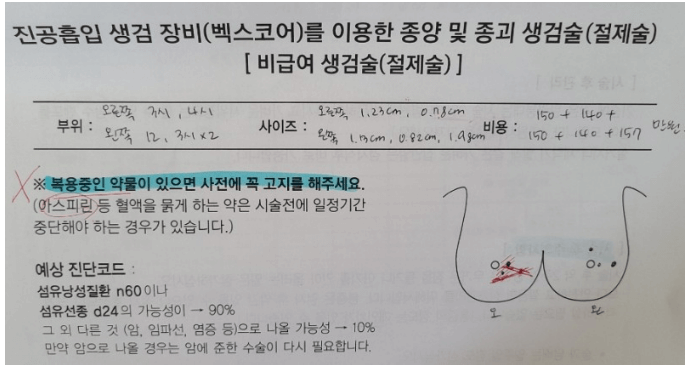 진공흡입 생검 장비(벡스코어)를 이용한 종양 및 종괴 생검술(절제술)
[ 비급여 생검술(절제술) ]
부위 : 오른쪽 3시, 4시 사이즈 : 오른쪽 1.23cm, 0.78cm 비용 : 150 + 140 +
왼쪽 12, 3시×2 왼쪽 1.15cm, 0.82cm, 1.98cm 150 + 140 + 157 만원
※ 복용중인 약물이 있으면 사전에 꼭 고지를 해주세요.
(아스피린 등 혈액을 묽게 하는 약은 시술전에 일정기간
중단해야 하는 경우가 있습니다.)
예상 진단코드 :
섬유낭성질환 n60이나
섬유선종 d24의 가능성이 → 90%
그 외 다른 것 (암, 임파선, 염증 등)으로 나올 가능성 → 10%
만약 암으로 나올 경우는 암에 준한 수술이 다시 필요합니다.
오 왼